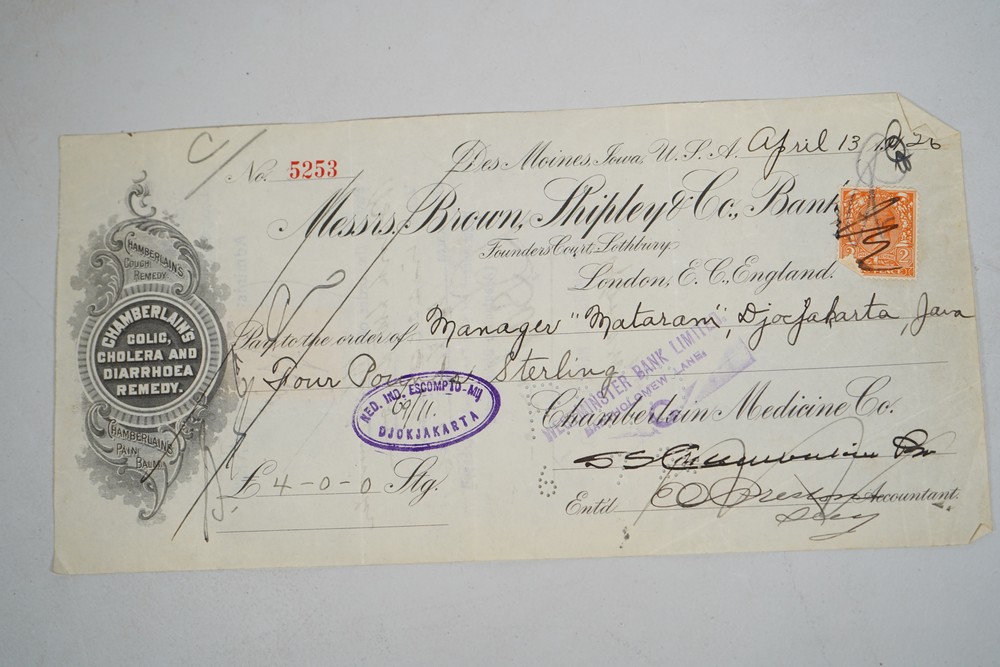 C/
No. 5253
Des Moines, Iowa, U.S.A. April 13 1926
Messrs. Brown, Shipley & Co., Bank
Founders Court, Lothbury
London, E.C., England.
2
Pay to the order of Manager "Mataram", Djocjakarta, Java
Four Pounds Sterling
WESTMINSTER BANK LIMITED
BARTHOLOMEW LANE.
NED. IND. ESCOMPTO-MIJ
09/11.
DJOKJAKARTA
Chamberlain Medicine Co.
£ 4-0-0 Stg.
Ent'd Accountant.
CHAMBERLAIN'S
COUGH
REMEDY
CHAMBERLAIN'S
COLIC,
CHOLERA AND
DIARRHOEA
REMEDY.
CHAMBERLAIN'S
PAIN
BALM